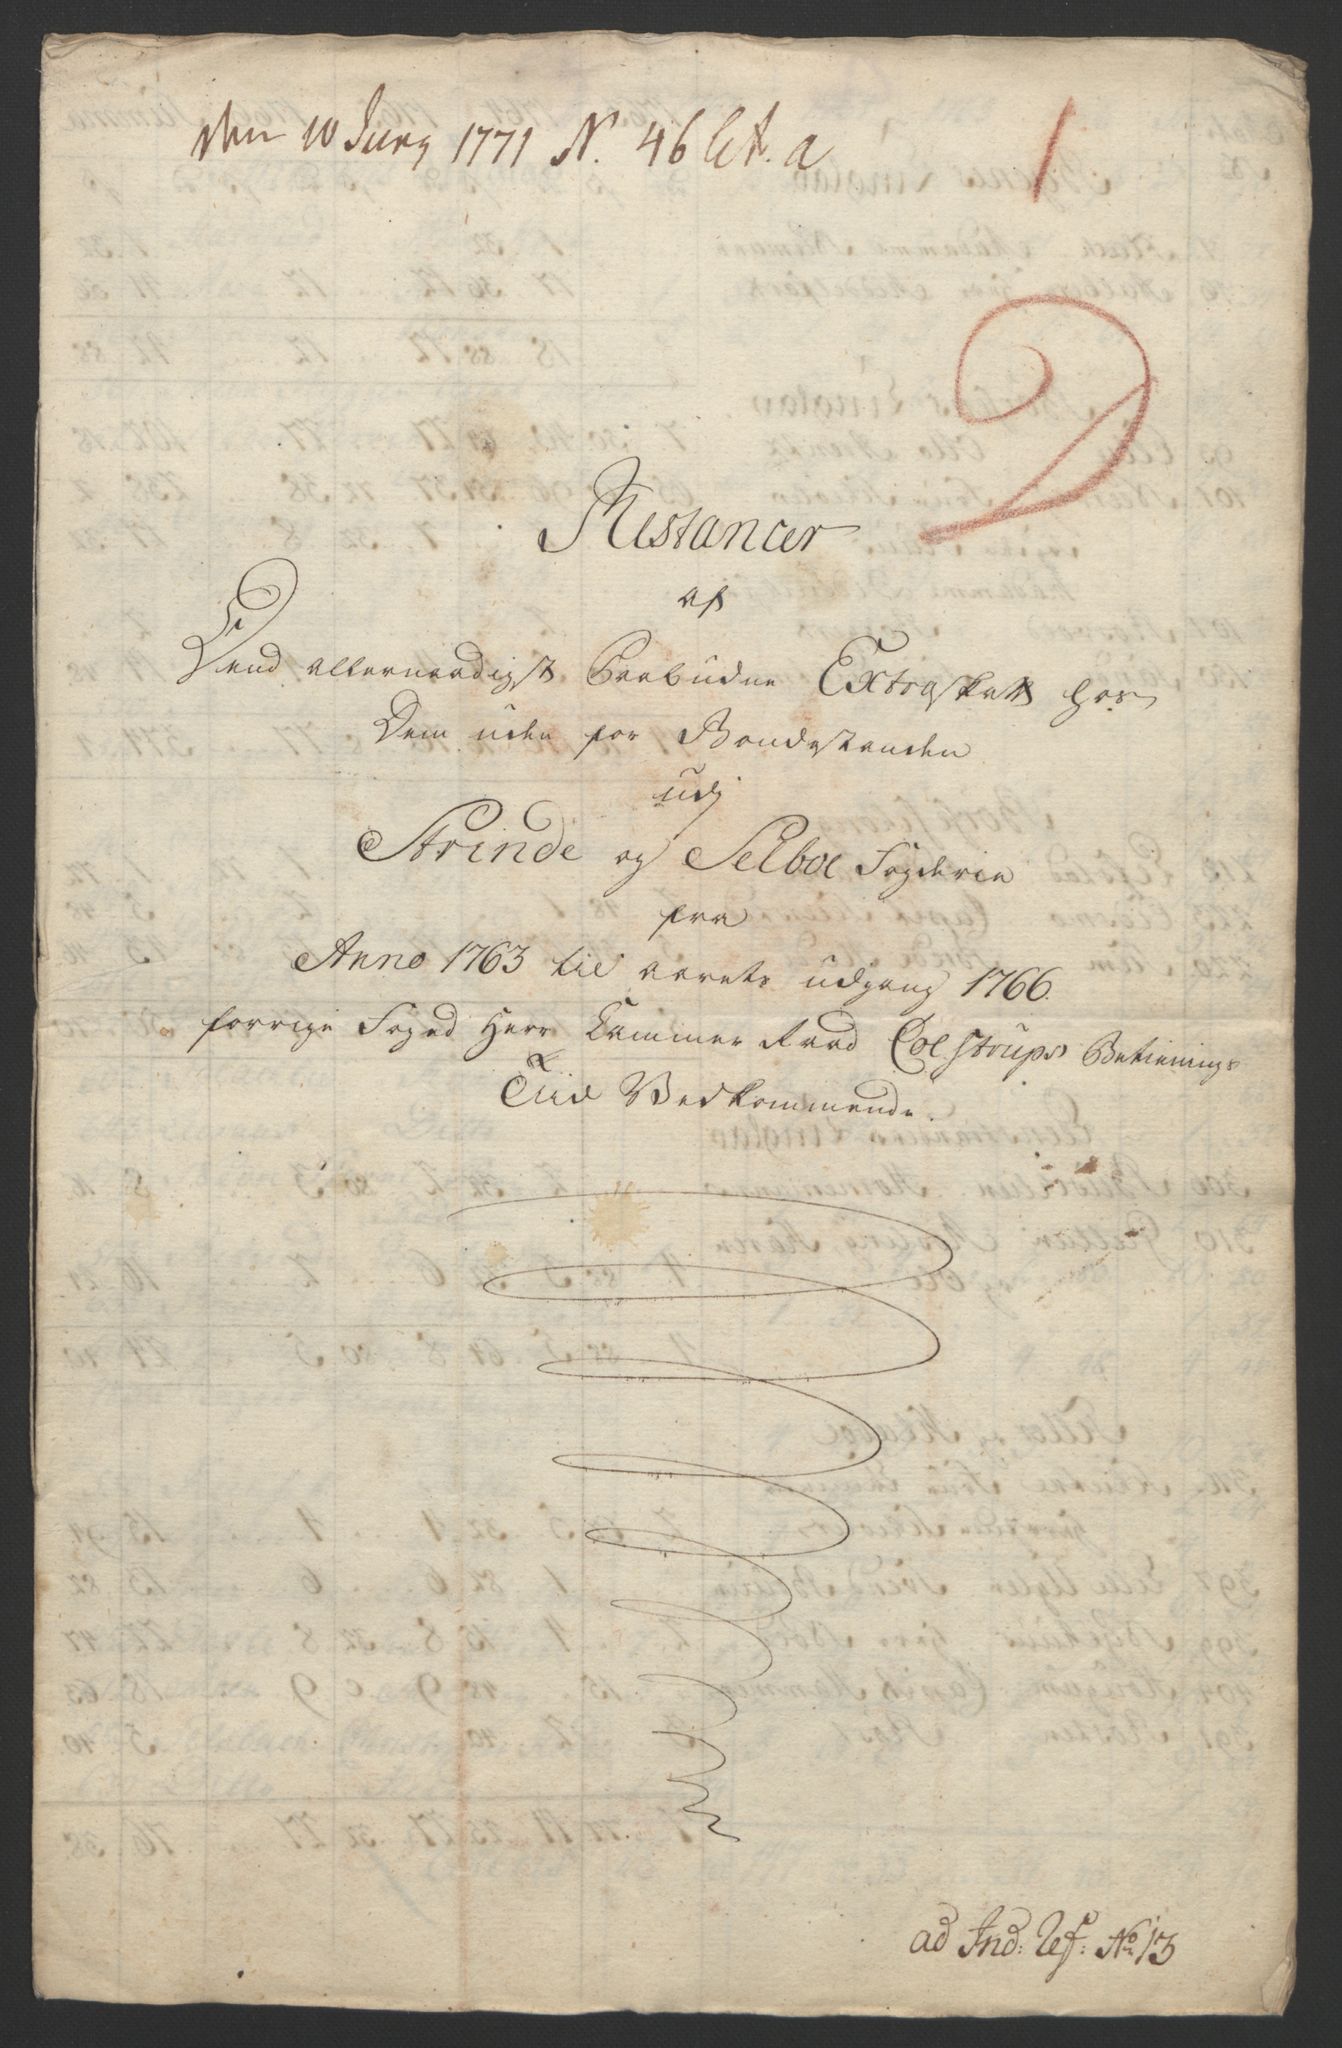 den 10 Jury 1771 N. 46 lit. a
1
Restancer
af
Dend allernaadigst Paabudne Extraskatt hos
Dem uden for Bondestanden
udj
Strinde og Selboe Fogderie
fra
Anno 1763 til aarets udgang 1766.
forrige Foged Herr Kammer Raad Colstrups Betienings
Tiid Vedkommende.
ad Ind: Us: No 13